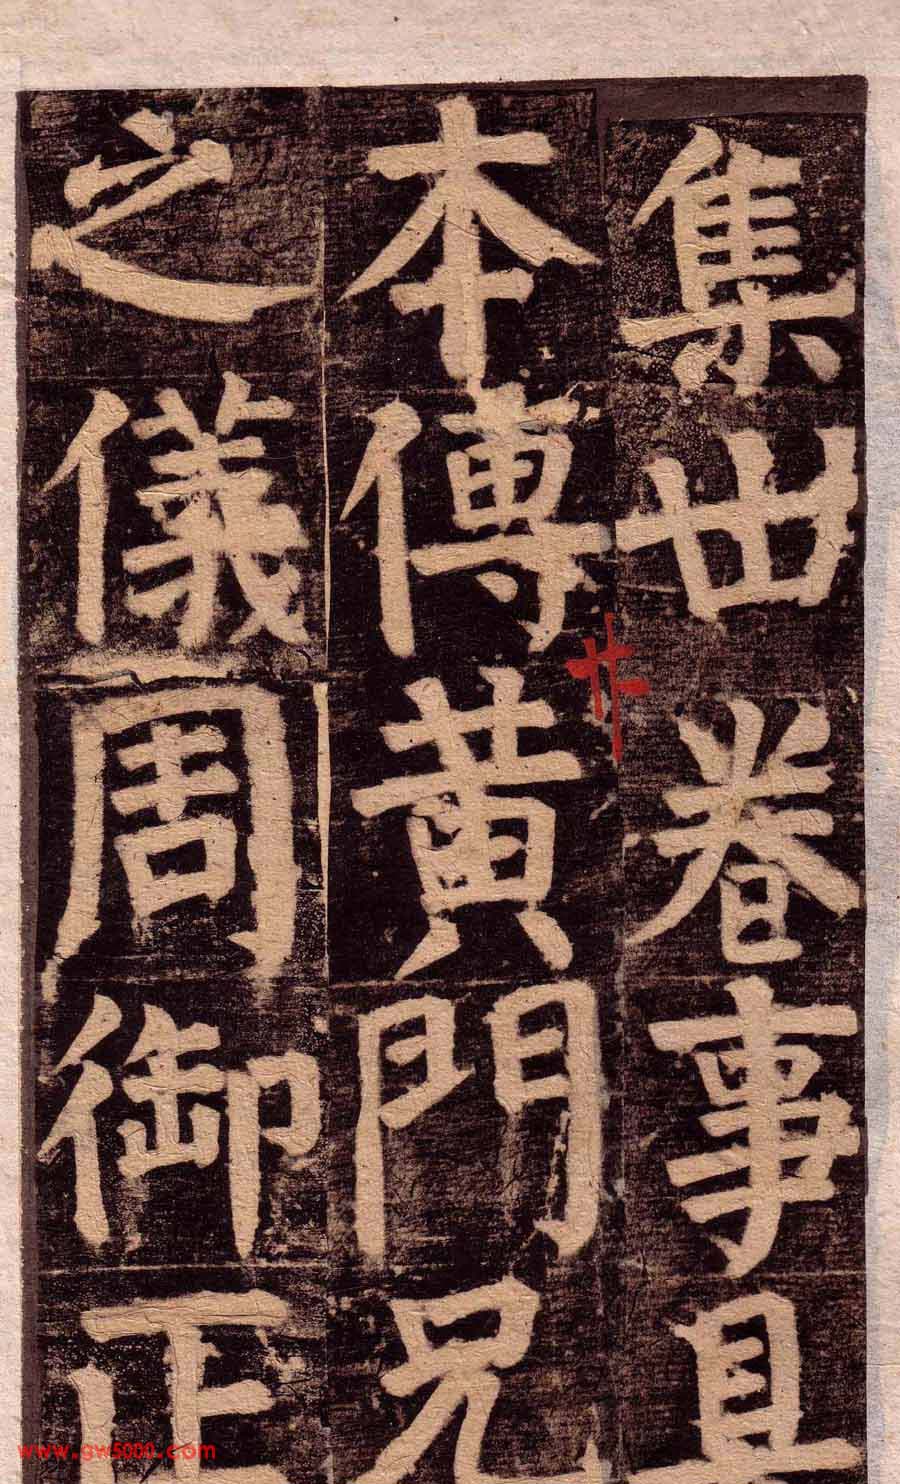 集卌卷事具
本傳黃門兄
之儀周御正
卄
www.gw5000.com